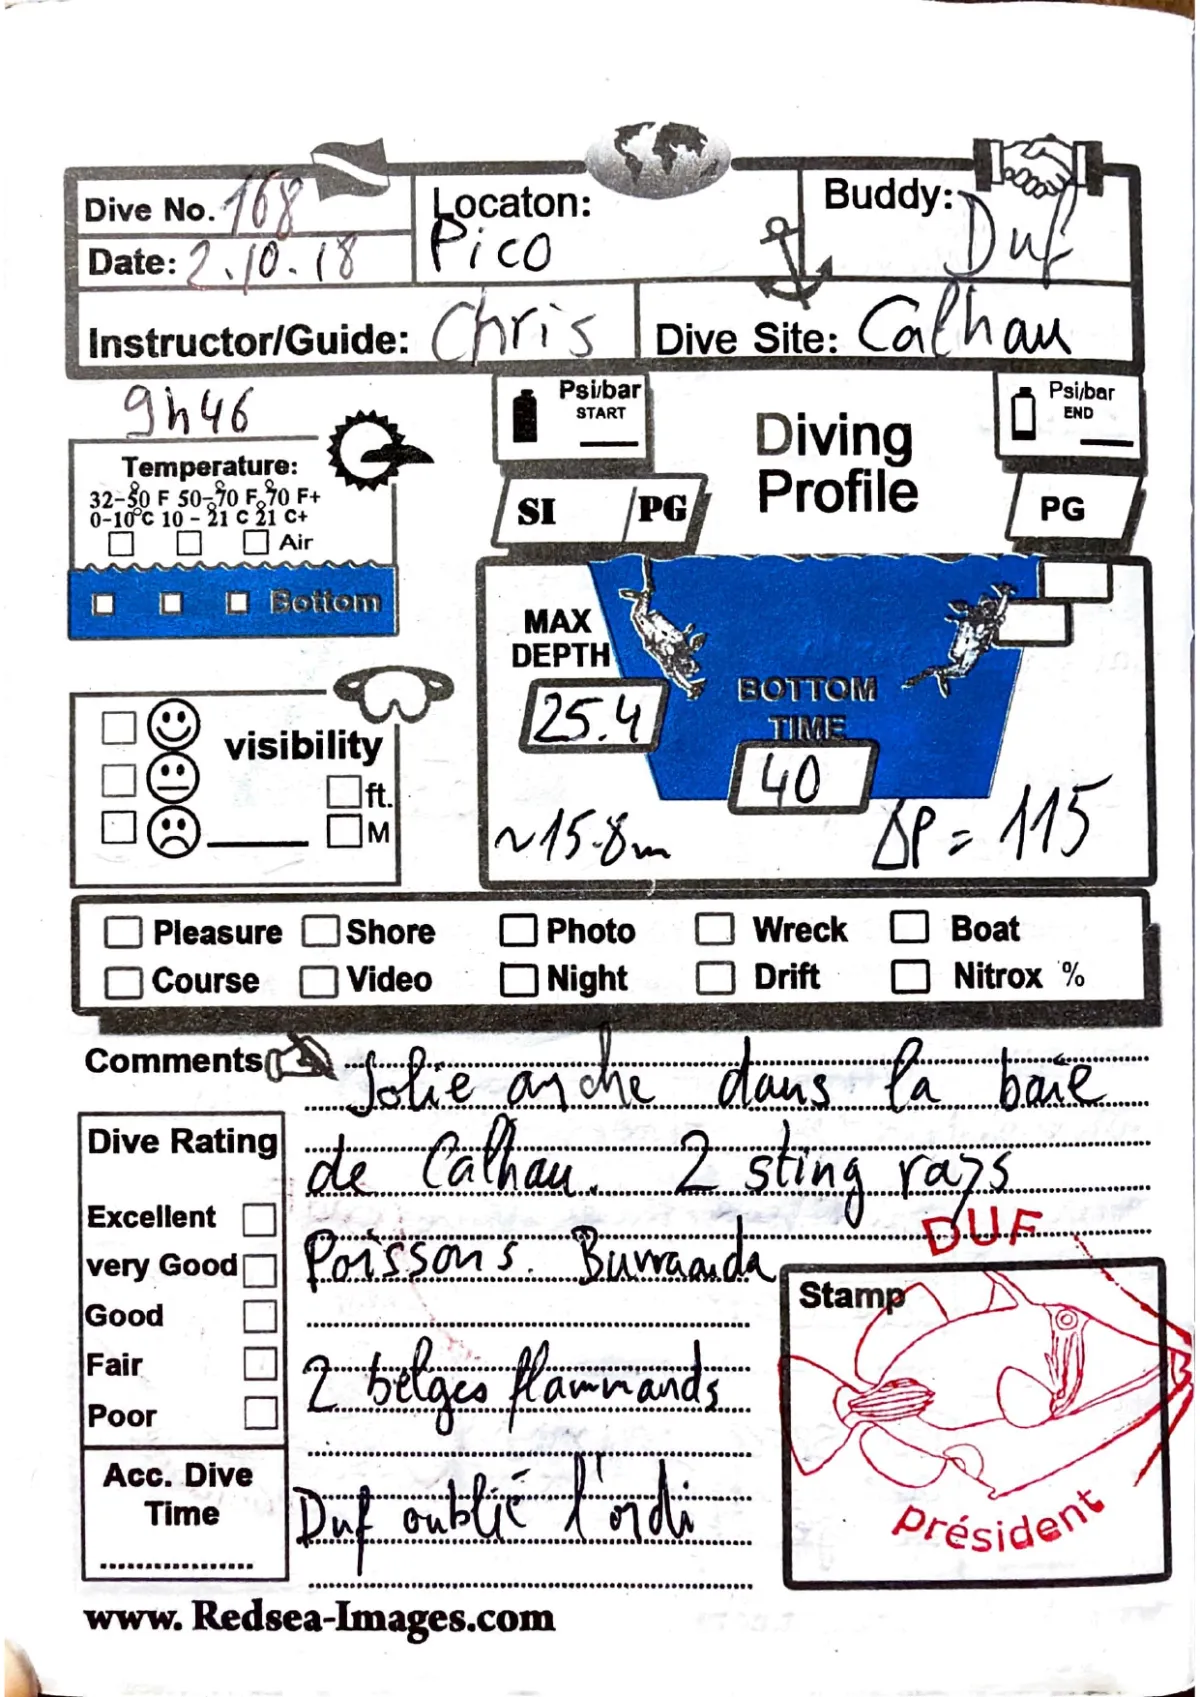 Dive No. 168
Locaton:
Pico
Buddy: Duf
Date: 2.10.18
Instructor/Guide: Chris
Dive Site: Calhau
9h46
Psi/bar
START
Diving
Profile
Psi/bar
END
Temperature:
32-50 F 50-70 F 70 F+
0-10°C 10 - 21 C 21 C+
Air
Bottom
SI / PG
PG
MAX
DEPTH
25.4
BOTTOM
TIME
40
~15.8m
ΔP = 115
visibility
ft.
M
Pleasure Shore Photo Wreck Boat
Course Video Night Drift Nitrox %
Comments Jolie arche dans la baie
de Calhau. 2 sting rays
Poissons.
2 belges flammands
Duf oublié l'ordi
Dive Rating
Excellent
very Good
Good
Fair
Poor
Acc. Dive
Time
DUF
Stamp
président
www. Redsea-Images.com